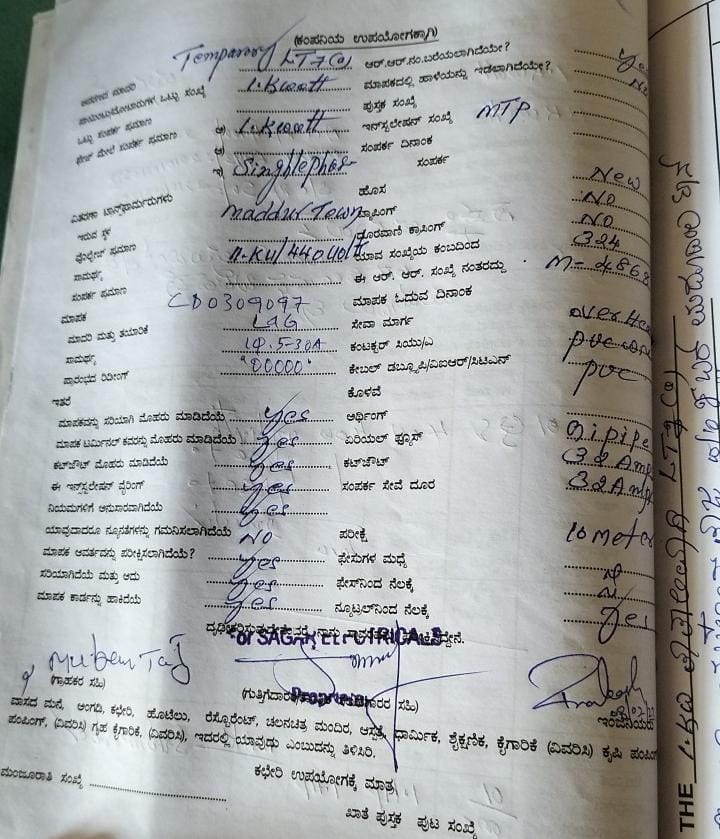 (ಕಂಪನಿಯ ಉಪಯೋಗಕ್ಕಾಗಿ)
Temporary LT7(a) ಆರ್.ಆರ್.ನಂ.ಬರೆಯಲಾಗಿದೆಯೇ? Yes
ಪಾಯಿಂಟುಗಳ ಒಟ್ಟು ಸಂಖ್ಯೆ 1.Kwatt ಮಾಪಕದಲ್ಲಿ ಹಾಳೆಯನ್ನು ಇಡಲಾಗಿದೆಯೇ? No
ಒಟ್ಟು ಸಂಪರ್ಕ ಪ್ರಮಾಣ ಪುಸ್ತಕ ಸಂಖ್ಯೆ
ಫೇಸ್ ಮೇಲೆ ಸಂಪರ್ಕ ಪ್ರಮಾಣ 1.Kwatt ಇನ್‌ಸ್ಟಲೇಷನ್ ಸಂಖ್ಯೆ MTP
ಸಂಪರ್ಕ ದಿನಾಂಕ
Singlephas ಸಂಪರ್ಕ
ವಿತರಣಾ ಟ್ರಾನ್ಸ್‌ಫಾರ್ಮರುಗಳು ಹೊಸ New
ಇರುವ ಸ್ಥಳ Maddur Town ಮ್ಯಾಪಿಂಗ್ No
ವೋಲ್ಟೇಜ್ ಪ್ರಮಾಣ ದೂರವಾಣಿ ಕ್ರಾಸಿಂಗ್ No
ಸಾಮರ್ಥ್ಯ 11.KV/440Volt ಯಾವ ಸಂಖ್ಯೆಯ ಕಂಬದಿಂದ 324
ಸಂಪರ್ಕ ಪ್ರಮಾಣ ಈ ಆರ್. ಆರ್. ಸಂಖ್ಯೆ ನಂತರದ್ದು M-4868
ಮಾಪಕ CD0309097 ಮಾಪಕ ಓದುವ ದಿನಾಂಕ
ಮಾದರಿ ಮತ್ತು ತಯಾರಿಕೆ L&G ಸೇವಾ ಮಾರ್ಗ over Hea
ಸಾಮರ್ಥ್ಯ 1Φ.5-30A ಕಂಡಕ್ಟರ್ ಸಿಯು/ಎ pvc
ಪ್ರಾರಂಭದ ರಿಡೀಂಗ್ "00000" ಕೇಬಲ್ ಡಬ್ಲ್ಯೂಪಿ/ವಿಐಆರ್/ಸಿಟಿಎಸ್ pvc
ಇತರೆ ಕೊಳವೆ
ಮಾಪಕವನ್ನು ಸರಿಯಾಗಿ ಮೊಹರು ಮಾಡಿದೆಯೆ yes ಅರ್ಥಿಂಗ್ Gi pipe
ಮಾಪಕ ಟರ್ಮಿನಲ್ ಕವರನ್ನು ಮೊಹರು ಮಾಡಿದೆಯೆ yes ಏರಿಯಲ್ ಫ್ಯೂಸ್ 32 Amp
ಕಟ್‌ಔಟ್ ಮೊಹರು ಮಾಡಿದೆಯೆ yes ಕಟ್‌ಔಟ್ 32 Amp
ಈ ಇನ್‌ಸ್ಟಲೇಷನ್ ವೈರಿಂಗ್ yes ಸಂಪರ್ಕ ಸೇವೆ ದೂರ
ನಿಯಮಗಳಿಗೆ ಅನುಸಾರವಾಗಿದೆಯೆ yes
ಯಾವುದಾದರೂ ನ್ಯೂನತೆಗಳನ್ನು ಗಮನಿಸಲಾಗಿದೆಯೆ No ಪರೀಕ್ಷೆ 10 meter
ಮಾಪಕ ಆವರ್ತವನ್ನು ಪರೀಕ್ಷಿಸಲಾಗಿದೆಯೆ? yes ಫೇಸುಗಳ ಮಧ್ಯೆ
ಸರಿಯಾಗಿದೆಯೆ ಮತ್ತು ಅದು yes ಫೇಸ್‌ನಿಂದ ನೆಲಕ್ಕೆ
ಮಾಪಕ ಕಾರ್ಡನ್ನು ಹಾಕಿದೆಯೆ yes ನ್ಯೂಟ್ರಲ್‌ನಿಂದ ನೆಲಕ್ಕೆ yes
For SAGAR ELECTRICALS
Mubeen Taj
(ಗ್ರಾಹಕರ ಸಹಿ) Proprietor ಇಂಜಿನಿಯರ
ವಾಸದ ಮನೆ, ಅಂಗಡಿ, ಕಛೇರಿ, ಹೋಟೆಲು, ರೆಸ್ಟೋರೆಂಟ್, ಚಲನಚಿತ್ರ ಮಂದಿರ, ಆಸ್ಪತ್ರೆ, ಧಾರ್ಮಿಕ, ಶೈಕ್ಷಣಿಕ, ಕೈಗಾರಿಕೆ (ವಿವರಿಸಿ) ಕೃಷಿ ಪಂಪಿಂಗ್
ಪಂಪಿಂಗ್, (ವಿವರಿಸಿ) ಗೃಹ ಕೈಗಾರಿಕೆ, (ವಿವರಿಸಿ), ಇದರಲ್ಲಿ ಯಾವುದು ಎಂಬುದನ್ನು ತಿಳಿಸಿರಿ.
ಕಛೇರಿ ಉಪಯೋಗಕ್ಕೆ ಮಾತ್ರ
ಮಂಜೂರಾತಿ ಸಂಖ್ಯೆ ಖಾತೆ ಪುಸ್ತಕ ಪುಟ ಸಂಖ್ಯೆ
THE LT7(a)